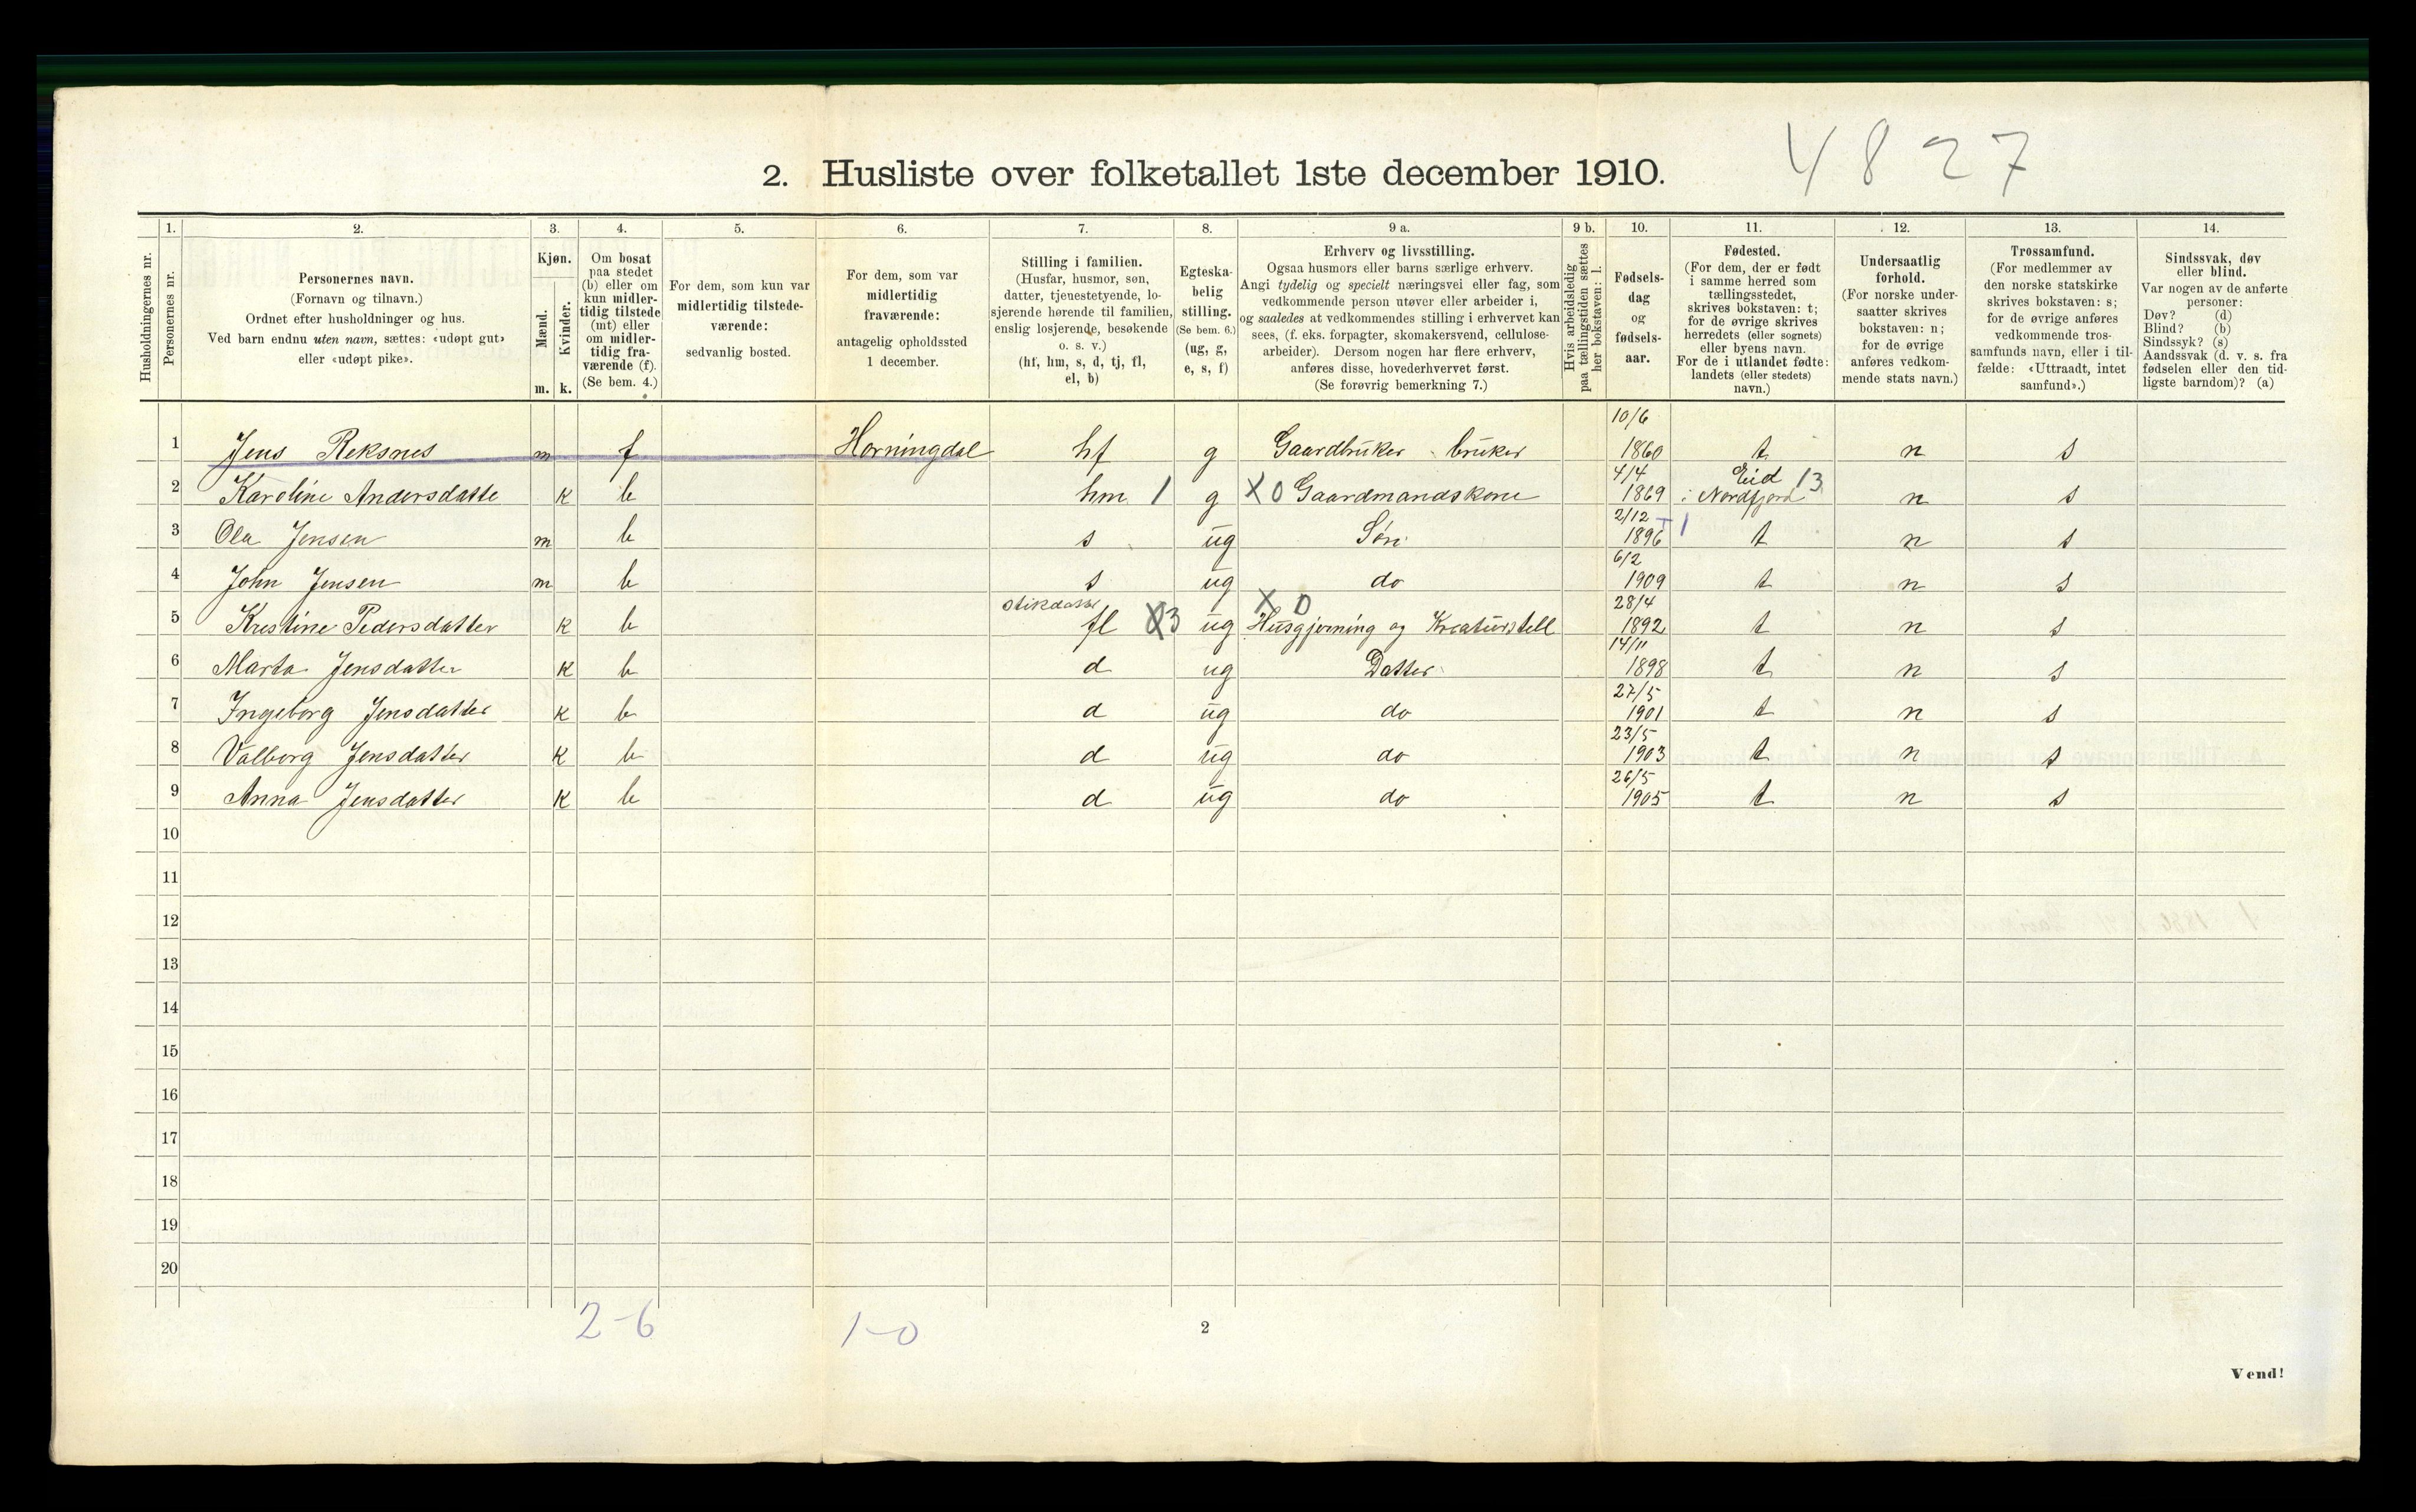 4827
2. Husliste over folketallet 1ste december 1910.
Husholdningernes nr.
1.
Personernes nr.
2.
Personernes navn.
(Fornavn og tilnavn.)
Ordnet efter husholdninger og hus.
Ved barn endnu uten navn, sættes: «udøpt gut»
eller «udøpt pike».
3.
Kjøn.
Mænd.
Kvinder.
m. k.
4.
Om bosat
paa stedet
(b) eller om
kun midler-
tidig tilstede
(mt) eller
om midler-
tidig fra-
værende (f).
(Se bem. 4.)
5.
For dem, som kun var
midlertidig tilstede-
værende:
sedvanlig bosted.
6.
For dem, som var
midlertidig
fraværende:
antagelig opholdssted
1 december.
7.
Stilling i familien.
(Husfar, husmor, søn,
datter, tjenestetyende, lo-
sjerende hørende til familien,
enslig losjerende, besøkende
o. s. v.)
(hf, hm, s, d, tj, fl,
el, b)
8.
Egteska-
belig
stilling.
(Se bem. 6.)
(ug, g,
e, s, f)
9 a.
Erhverv og livsstilling.
Ogsaa husmors eller barns særlige erhverv.
Angi tydelig og specielt næringsvei eller fag, som
vedkommende person utøver eller arbeider i,
og saaledes at vedkommendes stilling i erhvervet kan
sees, (f. eks. forpagter, skomakersvend, cellulose-
arbeider). Dersom nogen har flere erhverv,
anføres disse, hovederhvervet først.
(Se forøvrig bemerkning 7.)
9 b.
Hvis arbeidsledig
paa tællingstiden sættes
her bokstaven: l.
10.
Fødsels-
dag
og
fødsels-
aar.
11.
Fødested.
(For dem, der er født
i samme herred som
tællingsstedet,
skrives bokstaven: t;
for de øvrige skrives
herredets (eller sognets)
eller byens navn.
For de i utlandet fødte:
landets (eller stedets)
navn.)
12.
Undersaatlig
forhold.
(For norske under-
saatter skrives
bokstaven: n;
for de øvrige
anføres vedkom-
mende stats navn.)
13.
Trossamfund.
(For medlemmer av
den norske statskirke
skrives bokstaven: s;
for de øvrige anføres
vedkommende tros-
samfunds navn, eller i til-
fælde: «Uttraadt, intet
samfund».)
14.
Sindssvak, døv
eller blind.
Var nogen av de anførte
personer:
Døv? (d)
Blind? (b)
Sindssyk? (s)
Aandssvak (d. v. s. fra
fødselen eller den tid-
ligste barndom)? (a)
1 Jens Reksnes m f Horningdal hf g Gaardbruker bruker 10/6 1860 t n s
2 Karoline Andersdatte k b hm 1 g X 0 Gaardmandskone 4/4 1869 Eid i Nordfjord 13 n s
3 Ola Jensen m b s ug Søn 2/12 1896 t n s
4 John Jensen m b s ug do 6/2 1909 t n s
5 Kristine Pedersdatter k b fl X3 ug X 0 Husgjerning og Kreaturstell 28/4 1892 t n s
6 Marta Jensdatter k b d ug Datter 14/11 1898 t n s
7 Ingeborg Jensdatter k b d ug do 27/5 1901 t n s
8 Valborg Jensdatter k b d ug do 23/5 1903 t n s
9 Anna Jensdatter k b d ug do 26/5 1905 t n s
10
11
12
13
14
15
16
17
18
19
20
2-6 1-0
2
Vend!